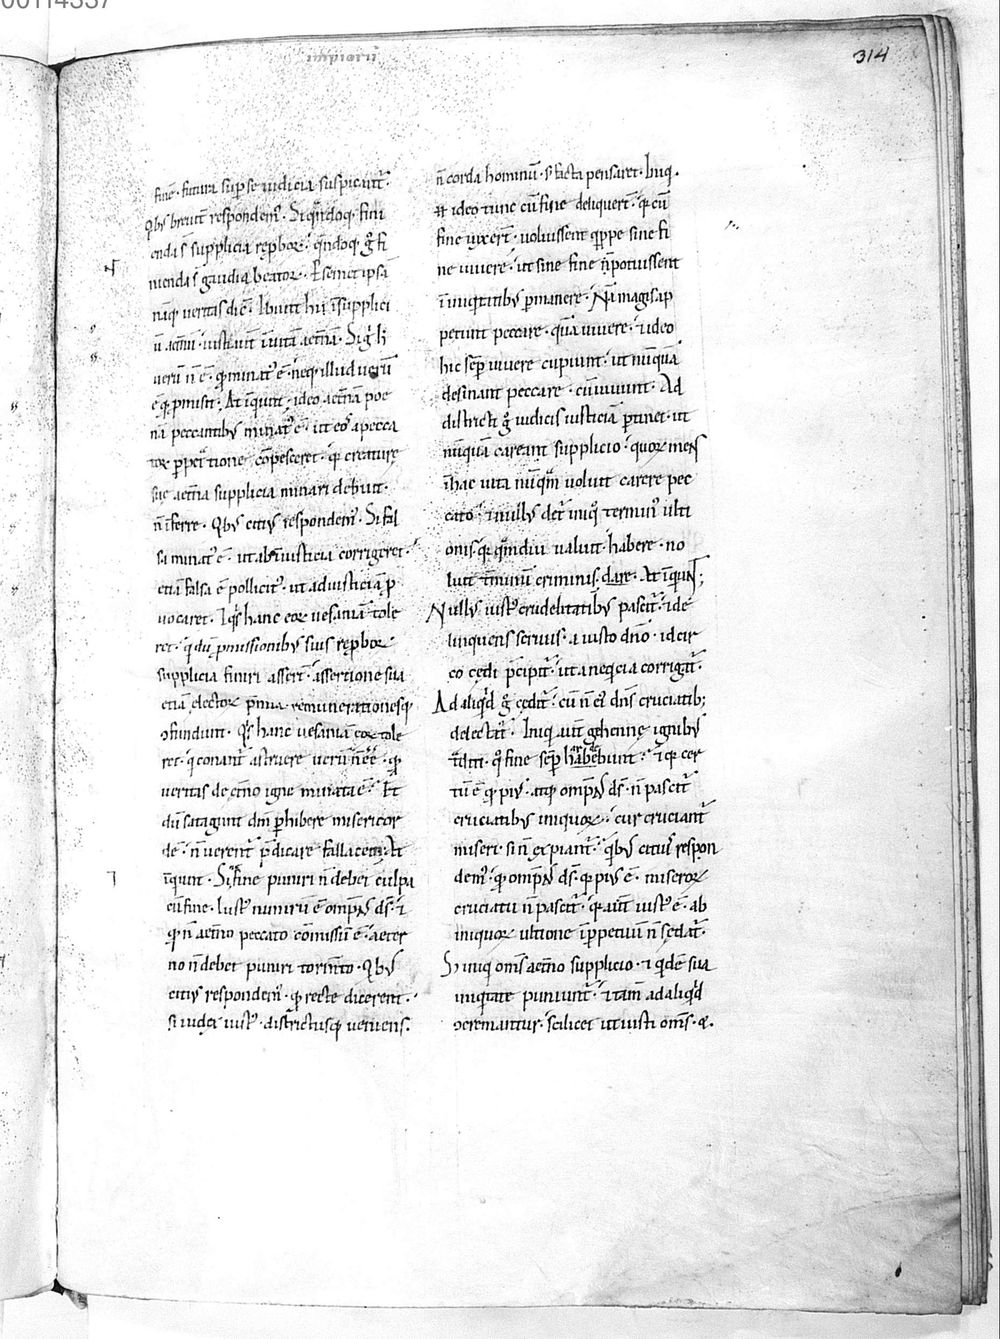 00114337
impiorū
314
finē · futura sup se iudicia suspicant᷑ ·
Qb; breuit᷑ respondem᷒ · Si qn̄doq; fini
enda s̄ supplicia rep̱boꝝ · qn̄doq; gͦ fi
nienda s̄ gaudia beatoꝝ · Per semet ipsā
nāq; ueritas dic̄ · Ibunt hii ī supplici
ū aet̄nū · iusti aut̄ ī uitā aet̄nā · Si gͦ h̄
uerū n̄ ē · q̄ minat᷒ ē · neq; illud uerū
ē q̄ p̱misit · At īquiunt · ideo aet̄nā poe
nā peccantib; minat᷒ ē · ut eos a pecca
toꝝ p̱pet᷑tione cōpesceret · q̄ creaturę
suę aet̄na supplicia minari debuit ·
n̄ īferre · Qb; citi᷒ respondem᷒ · Si fal
sa minat᷒ ē · ut ab iniusticia corrigeret ·
etiā falsa ē pollicit᷒ · ut ad iusticiā p̱
uocaret · Iqͥs hanc eoꝝ uesaniā tole
ret · q̇ dū p̱missionib; suis rep̱boꝝ
supplicia finiri assert᷑ · assertione sua
etiā electoꝝ p̄mia · remunerationesq;
ꝯfundunt · Qͥs hanc uesaniā eoꝝ tole
ret · q̇ conant᷑ astruere uerū n̄ ēē · q̄
ueritas de et̄no igne minata ē · Et
dū satagunt dn̄m p̱hibere misericor
dē · n̄ uerent᷑ p̄dicare fallacem · At
īquiunt · Sine fine puniri n̄ debet culpa
cū fine · Iust᷒ nimirū ē omp̄s ds̄ · ⁊
q̄ n̄ aet̄no peccato cōmissū ē · aeter
no n̄ debet puniri torm̄to · Qb;
citi᷒ respondem᷒ · q̄ recte dicerent ·
si iudex iust᷒ · districtusq; ueniens ·
n̄ corda hominū · s; facta pensaret · Iniq̇ ·
n̄ ideo tunc cū fine deliquert᷑ · q̄ cū
fine uixert᷑ · uoluissent q̇ppe sine fi
ne uiuere · ut sine fine n̄ potuissent
ī iniquitatib; p̱manere · Nā magis ap
petunt peccare · quā uiuere · ⁊ ideo
hic sēp uiuere cupiunt · ut nūquā
desinant peccare · cū uiuunt · Ad
districti gͦ iudicis iusticiā p̱tinet · ut
nūquā careant supplicio · quoꝝ mens
ī hac uita nūq̄m uoluit carere pec
cato · ⁊ null᷒ det᷑ iniqͦ termin᷒ ulti
onis · q̄ quādiu ualuit · habere · no
luit t᷑minū criminis dare · At īquiunt ;
Null᷒ iust᷒ crudelitatib; pascit᷑ · ⁊ de
linquens seruus · a iusto dn̄o · idcir
co cędi p̄cipit᷑ · ut a neqͥcia corrigat᷑ ·
Ad aliqͥd gͦ cędit᷑ · cū n̄ ei᷒ dn̄s cruciatib;
delectat᷑ · Iniq̇ aut̄ gehennę ignib;
t᷑diti · qͦ fine sēp habebunt · ⁊ q̄ cer
tū ē q̄ pi᷒ · atq; omp̄s ds̄ · n̄ pascit᷑
cruciatib; iniquoꝝ · cur cruciant᷑
miseri · si n̄ expiant᷑ · qͥb; citi᷒ respon
dem᷒ · q̄ omp̄s ds̄ · q̄ pi᷒ ē · miseroꝝ
cruciatu n̄ pascit᷑ · q̄ aut̄ iust᷒ ē · ab
iniquoꝝ ultione īp̱petuū n̄ sedat᷑ ·
S; iniq̇ om̄s aet̄no supplicio · ⁊ qͥdē sua
iniqͥtate puniunt᷑ · ⁊ tam̄ ad aliqͥd
ꝯcremantur · scilicet ut iusti om̄s · &